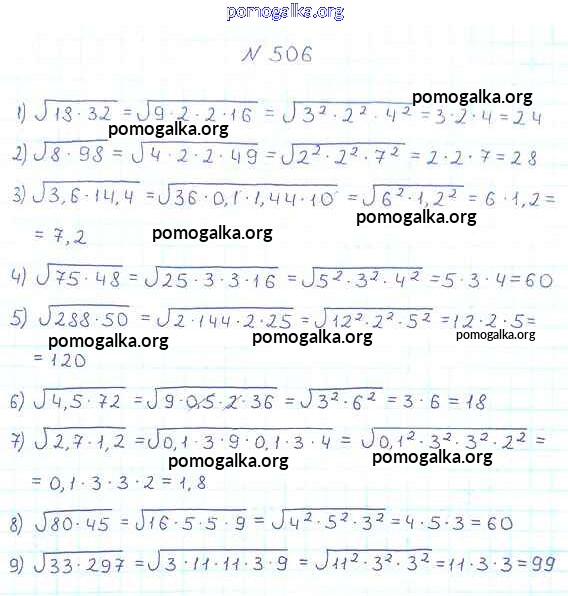 pomogalka.org
N 506
1) √18·32 = √9·2·2·16 = √3²·2²·4² = 3·2·4 = 24
pomogalka.org
pomogalka.org
2) √8·98 = √4·2·2·49 = √2²·2²·7² = 2·2·7 = 28
3) √3,6·14,4 = √36·0,1·1,44·10 = √6²·1,2² = 6·1,2 =
pomogalka.org
= 7,2
pomogalka.org
4) √75·48 = √25·3·3·16 = √5²·3²·4² = 5·3·4 = 60
5) √288·50 = √2·144·2·25 = √12²·2²·5² = 12·2·5 =
pomogalka.org
pomogalka.org
pomogalka.org
= 120
6) √4,5·72 = √9·0,5·2·36 = √3²·6² = 3·6 = 18
7) √2,7·1,2 = √0,1·3·9·0,1·3·4 = √0,1²·3²·3²·2² =
pomogalka.org
pomogalka.org
= 0,1·3·3·2 = 1,8
8) √80·45 = √16·5·5·9 = √4²·5²·3² = 4·5·3 = 60
9) √33·297 = √3·11·11·3·9 = √11²·3²·3² = 11·3·3 = 99